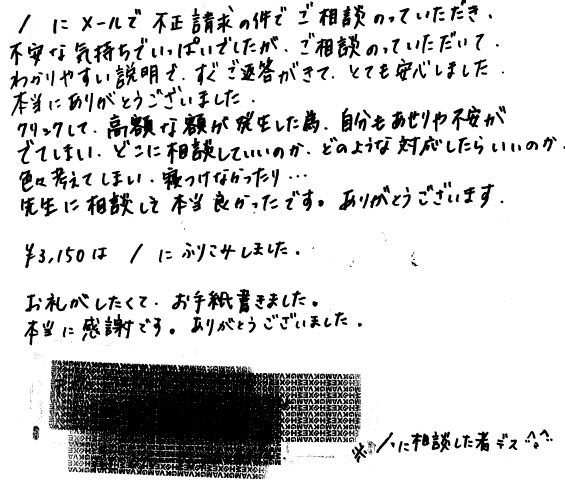 / にメールで不正請求の件でご相談のっていただき、
不安な気持ちでいっぱいでしたが、ご相談のっていただいて、
わかりやすい説明で、すぐご返答がきて、とても安心しました。
本当にありがとうございました。
クリックして、高額な額が発生した為、自分もあせりや不安が
でてしまい、どこに相談していいのか、どのような対応したらいいのか、
色々考えてしまい、寝つけなかったり…
先生に相談して本当良かったです。ありがとうございます。
¥3,150は / にふりこみしました。
お礼がしたくて、お手紙書きました。
本当に感謝です。ありがとうございました。
/ に相談した者デス^^